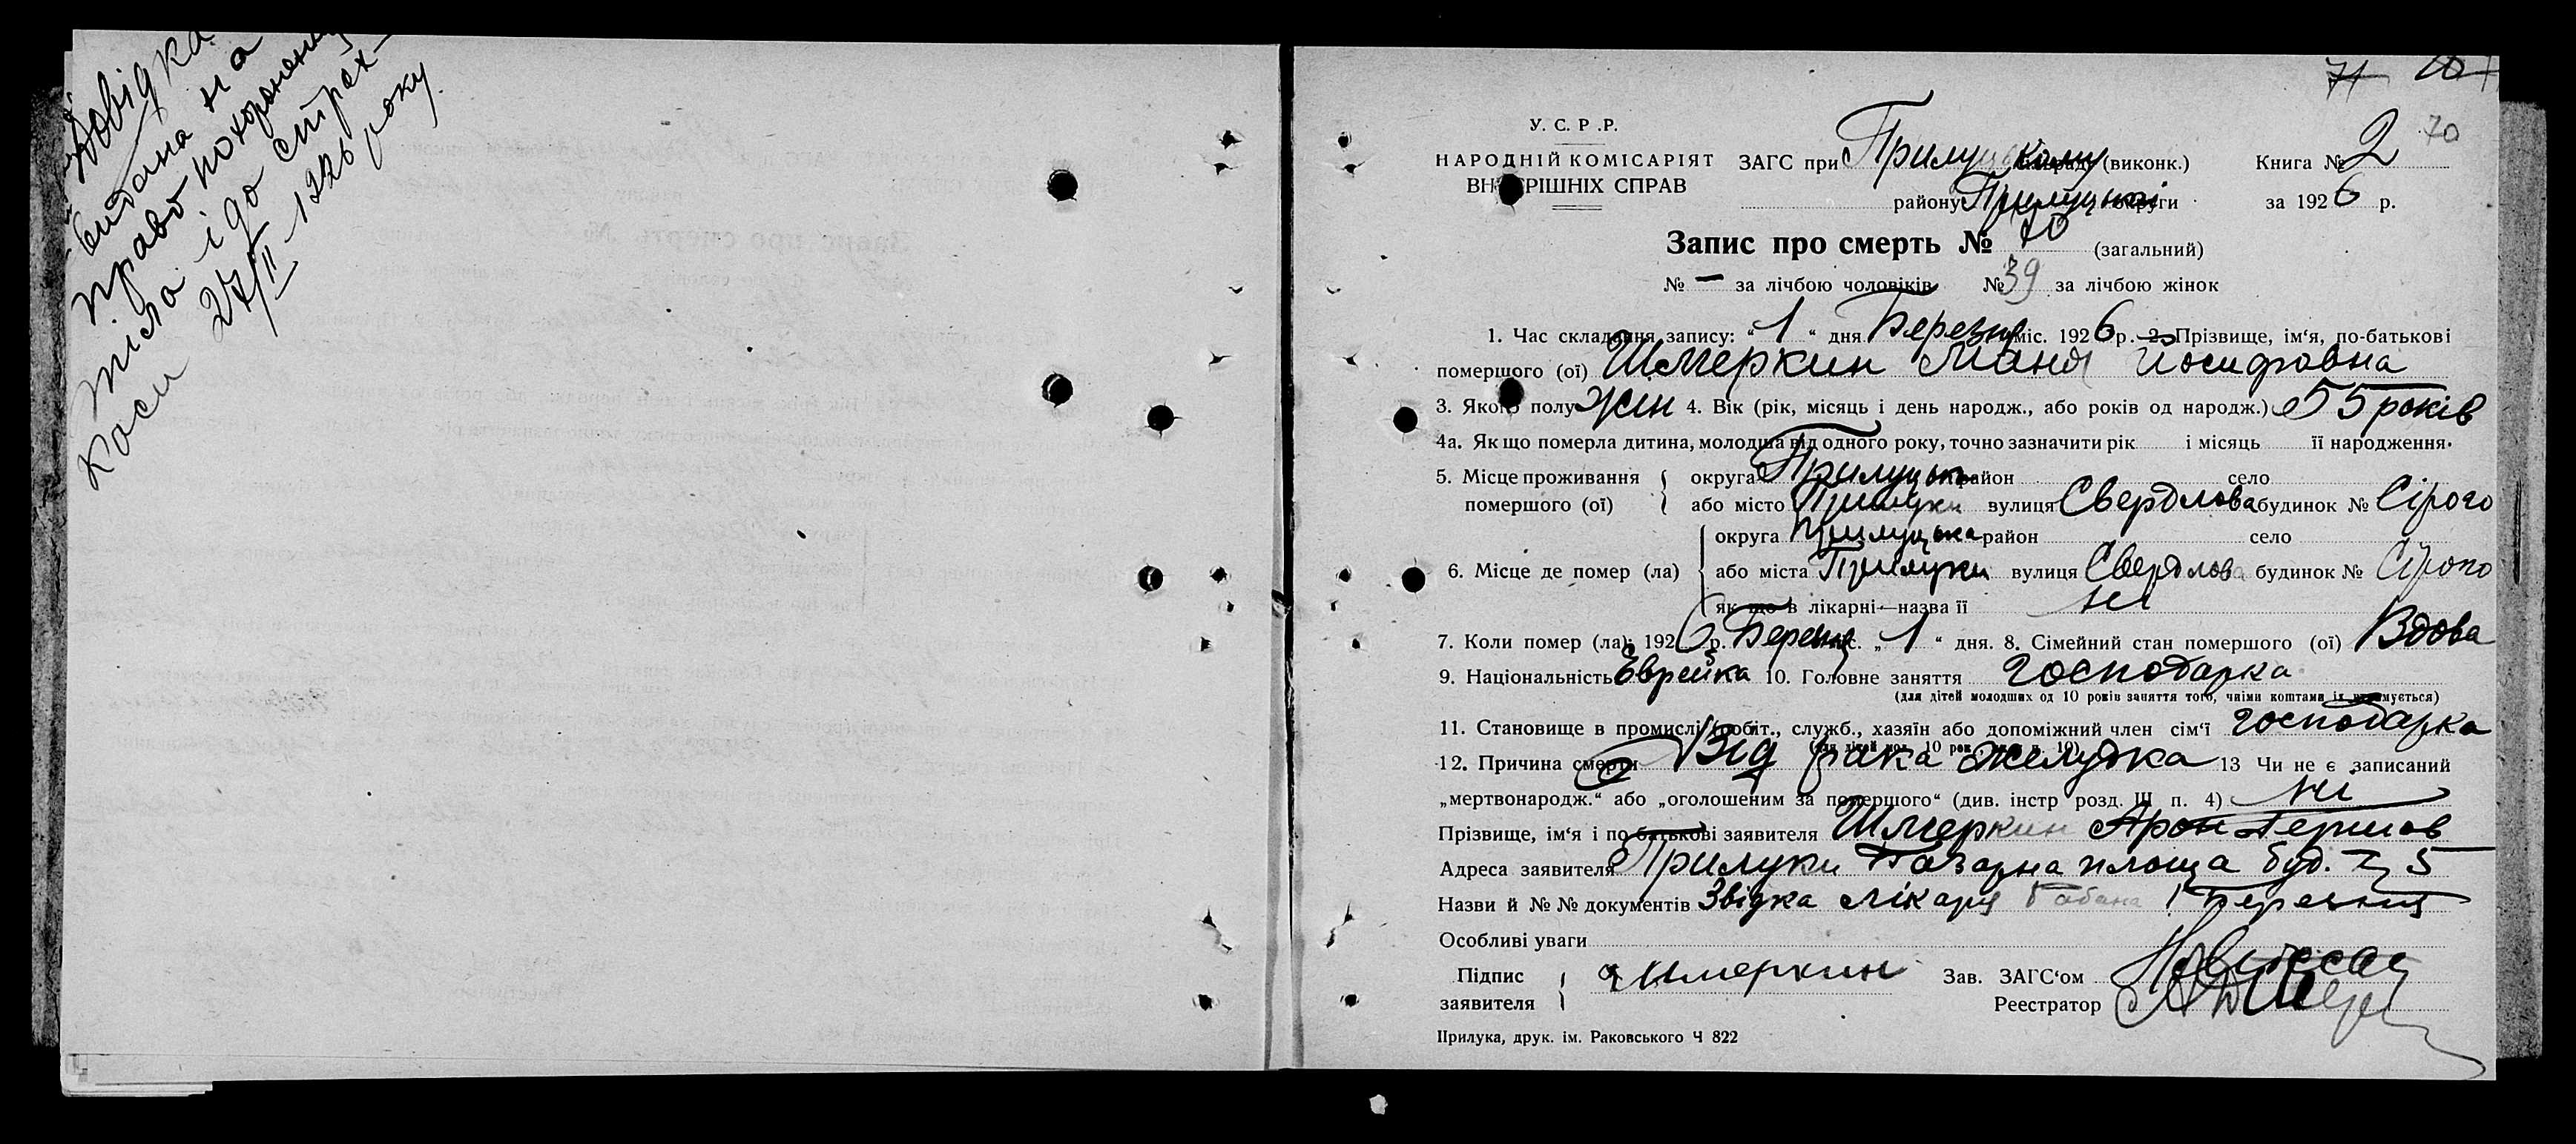 Довідка
видана на
право похоронення
тіла і до страх
каси 27/II 1926 року.
71
70
У. С. Р. Р.
НАРОДНІЙ КОМІСАРІЯТ
ВНУТРІШНІХ СПРАВ
ЗАГС при Прилуцькому (виконк.)
району Прилуцької округи
Книга № 2
за 1926 р.
Запис про смерть № 70 (загальний)
№ — за лічбою чоловіків № 39 за лічбою жінок
1. Час складання запису: “ 1 “ дня Березня міс. 1926 р. 2. Прізвище, ім‘я, по-батькові
помершого (ої) Шмеркин Маня Йосифовна
3. Якого полу жін 4. Вік (рік, місяць і день народж., або років од народж.) 55 років
4а. Як що померла дитина, молодша від одного року, точно зазначити рік і місяць її народження.
5. Місце проживання помершого (ої) { округа Прилуцька район село
або місто Прилуки вулиця Свердлова будинок № Сірого
6. Місце де помер (ла) { округа Прилуцька район село
або міста Прилуки вулиця Свердлова будинок № Сірого
як що в лікарні—назва її ні
7. Коли помер (ла): 1926 р. Березня міс. „ 1 “ дня. 8. Сімейний стан помершого (ої) Вдова
9. Національність Єврейка 10. Головне заняття господарка
(для дітей молодших од 10 років заняття того, чиїми коштами їх утримується)
11. Становище в промислі (робіт., служб., хазяїн або допоміжний член сім‘ї господарка
12. Причина смерти Від рака желудка 13 Чи не є записаний
„мертвонародж.“ або „оголошеним за помершого“ (див. інстр розд. Ш п. 4) ні
Прізвище, ім‘я і по батькові заявителя Шмеркин Арон Гершов
Адреса заявителя Прилуки Базарна площа буд. № 5
Назви й № № документів Звідка лікаря Бабана 1 Березня
Особливі уваги
Підпис заявителя { Шмеркин
Зав. ЗАГС‘ом
Реестратор
Прилука, друк. ім. Раковського Ч 822